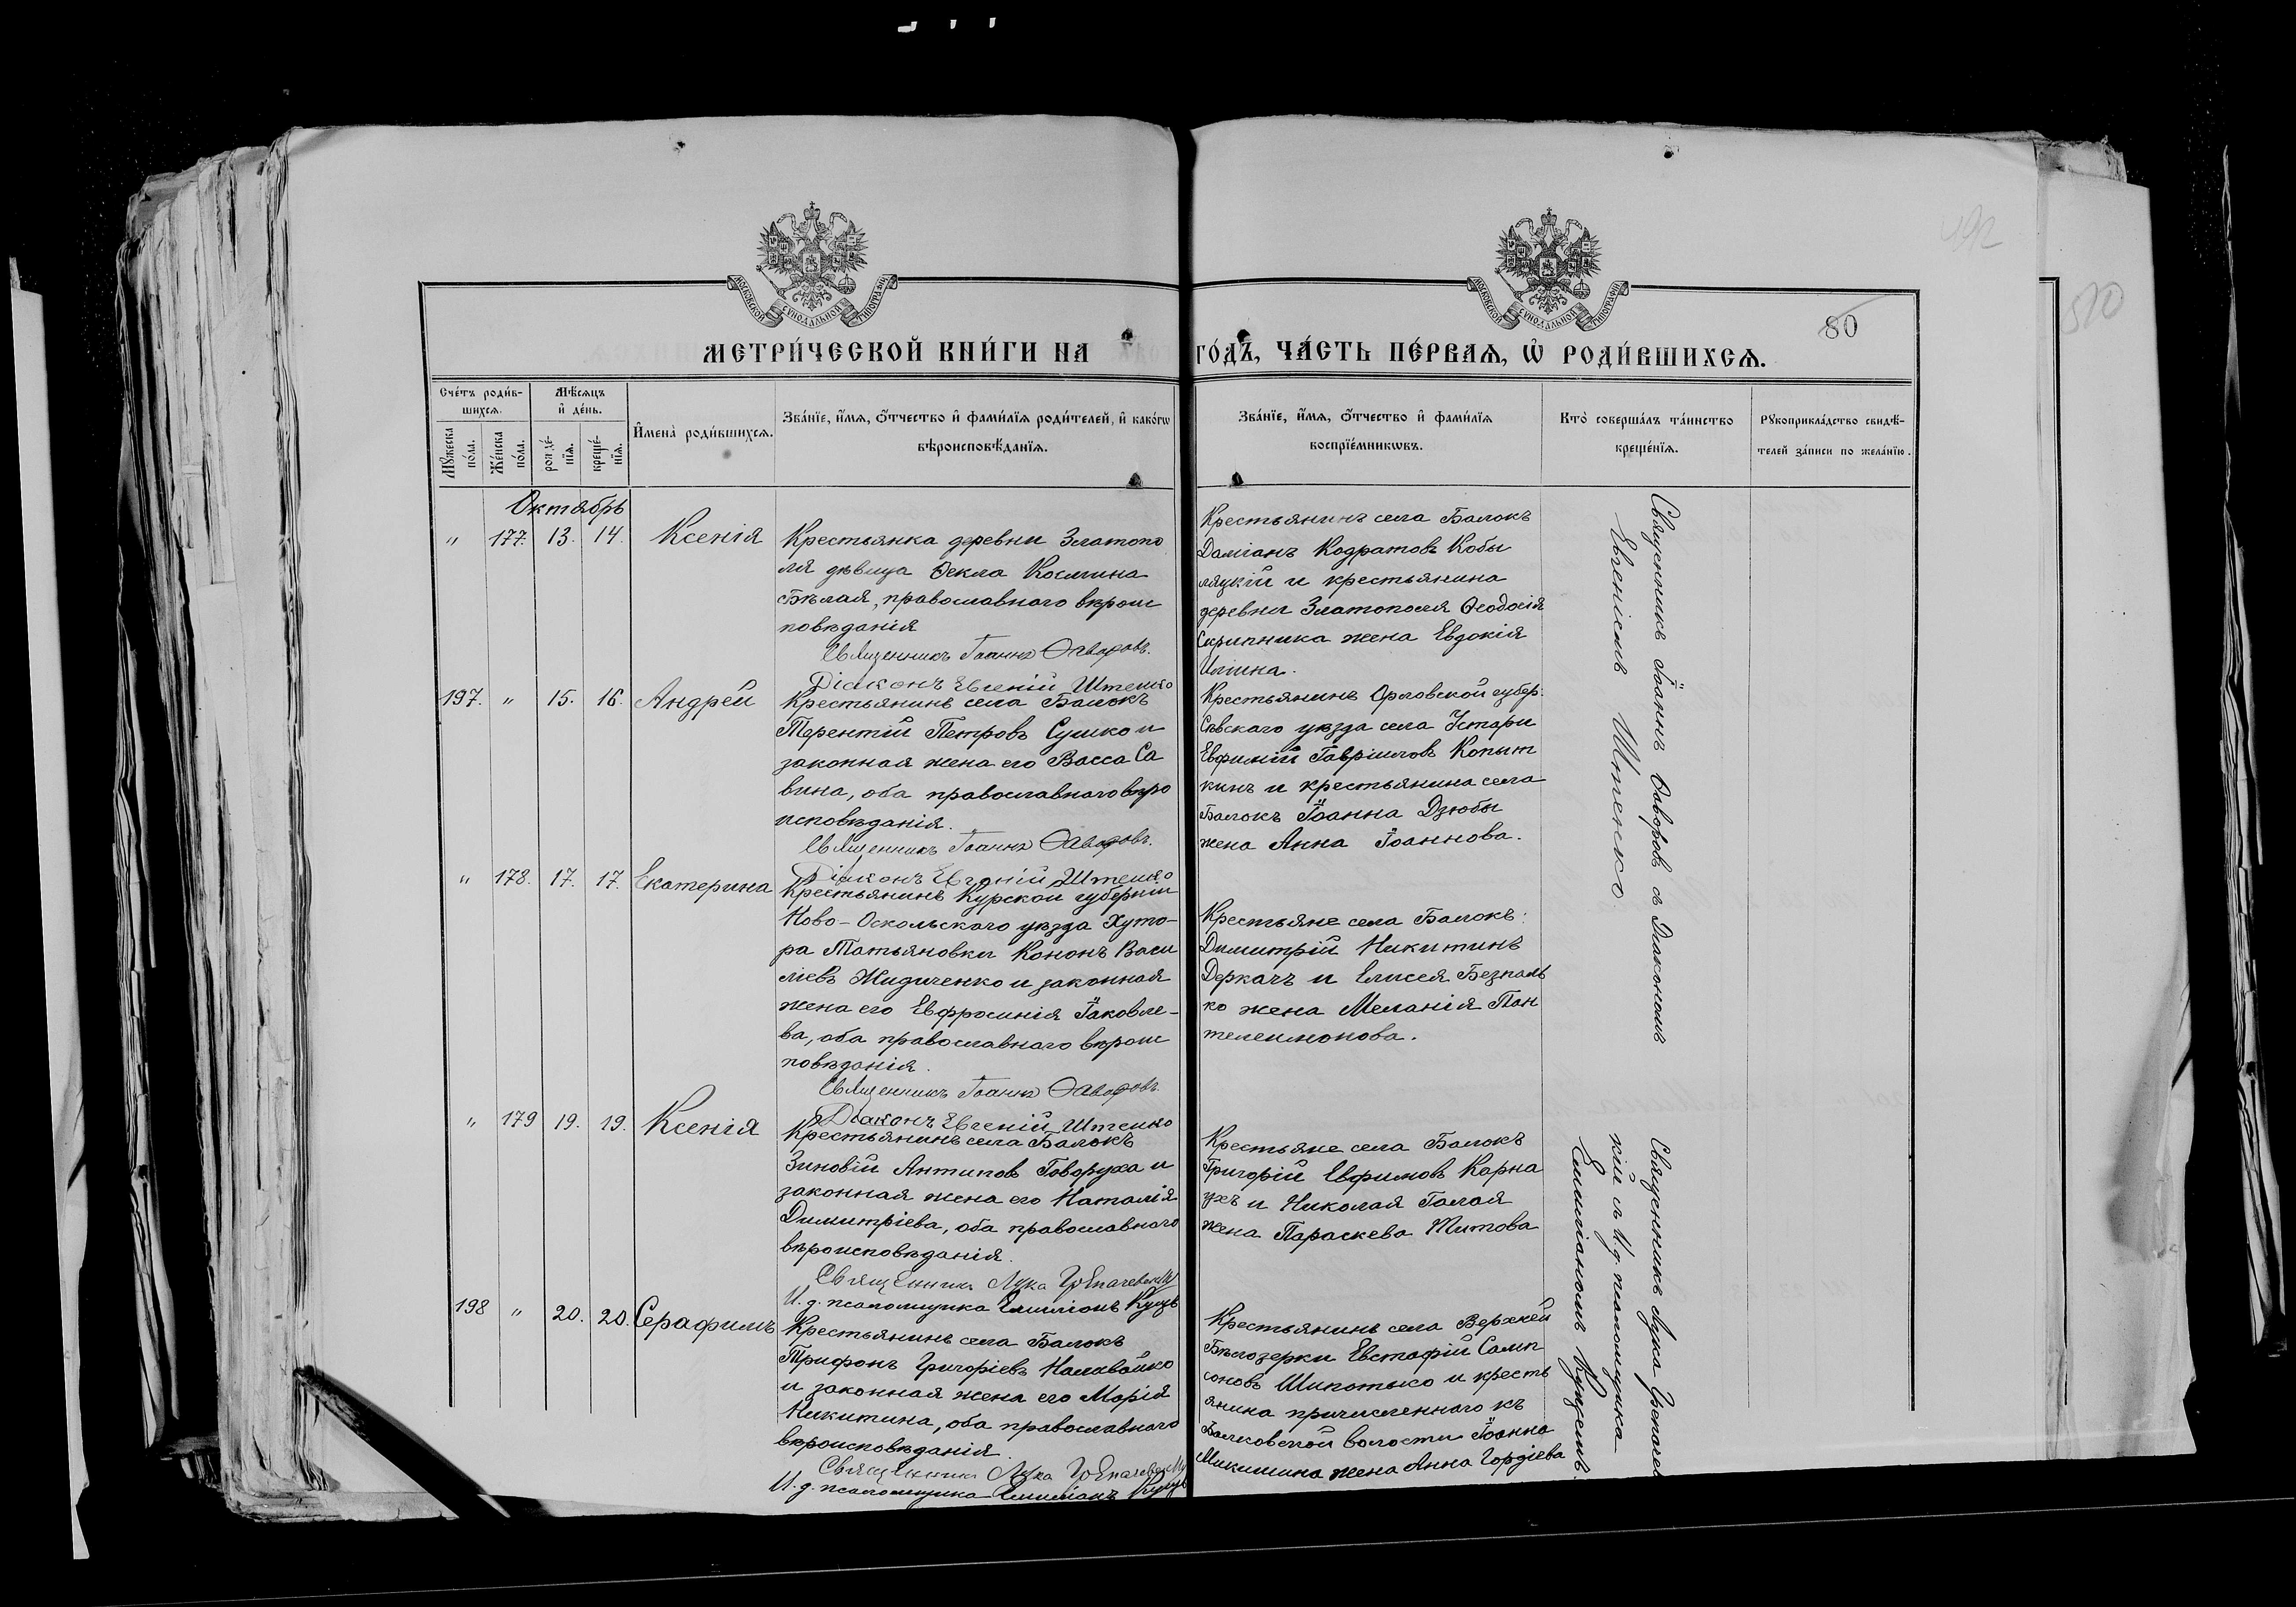 МОСКОВСКОЙ СѴНОДАЛЬНОЙ ТИПОГРАФІИ
МОСКОВСКОЙ СѴНОДАЛЬНОЙ ТИПОГРАФІИ
80
МЕТРИ́ЧЕСКОЙ КНИ́ГИ НА
ГО́ДЪ, ЧА́СТЬ ПЕ́РВАѦ, Ѡ҆ РОДИ́ВШИХСѦ.
Сче́тъ роди́в-
шихсѧ.
Мѣ́сѧцъ
и҆ де́нь.
Мꙋ́жеска
по́ла.
Же́нска
по́ла.
рожде́-
нїѧ.
креще́-
нїѧ.
И҆мена̀ роди́вшихсѧ.
Зва́нїе, и҆́мѧ, ѻ҆́тчество и҆ фами́лїѧ роди́телей, и҆ како́гѡ
вѣроисповѣ́данїѧ.
Зва́нїе, и҆́мѧ, ѻ҆́тчество и҆ фами́лїѧ
воспрїе́мникѡвъ.
Кто̀ соверша́лъ та́инство
креще́нїѧ.
Рꙋкоприкла́дство свидѣ́-
телей за́писи по жела́нїю.
Октябрь
" 177. 13. 14. Ксенія
Крестьянка деревни Златопо
ля дѣвица Ѳекла Космина
Бѣлая, православнаго вѣрои
повѣданія
Священникъ Іоаннъ Ѳаворовъ.
Діаконъ Евгеній Штенко
Крестьянинъ села Балокъ
Даміанъ Кодратовъ Кобы
ляцкій и крестьянина
деревни Златополя Ѳеодосія
Скрипника жена Евдокія
Иліина.
197. " 15. 16. Андрей
Крестьянинъ села Балокъ
Терентій Петровъ Сушко и
законная жена его Васса Са
вина, оба православнаго вѣро
исповѣданія.
Священникъ Іоаннъ Ѳаворовъ.
Діаконъ Евгеній Штенко
Крестьянинъ Орловской губер.
Сѣвскаго уѣзда села Устари
Евфимій Гавріиловъ Копыт
кинъ и крестьянина села
Балокъ Іоанна Дзюбы
жена Анна Іоаннова.
" 178. 17. 17. Екатерина
Крестьянинъ Курской губерніи
Ново-Оскольскаго уѣзда Хуто-
ра Татьяновки Кононъ Васи
ліевъ Жидиченко и законная
жена его Евфросинія Іаковле-
ва, оба православнаго вѣрои
повѣданія.
Священникъ Іоаннъ Ѳаворовъ.
Діаконъ Евгеній Штенко
Крестьяне села Балокъ:
Димитрій Никитинъ
Деркачъ и Елисея Безпаль
ко жена Меланія Пан
телеимонова.
Священникъ Іоаннъ Ѳаворовъ съ Діакономъ
Евгеніемъ Штенко
" 179 19. 19. Ксенія
Крестьянинъ села Балокъ
Зиновій Антиповъ Говоруха и
законная жена его Наталія
Димитріева, оба православнаго
вѣроисповѣданія.
Священникъ Лука
И. д. псаломщика Емиліанъ Куцъ
Крестьяне села Балокъ
Григорій Евфимовъ Карна
ухъ и Николая Галая
жена Параскева Титова
198 " 20. 20. Серафимъ
Крестьянинъ села Балокъ
Трифонъ Григоріевъ Наливайко
и законная жена его Марія
Никитина, оба православнаго
вѣроисповѣданія.
Священникъ Лука
И. д. псаломщика Емиліанъ Куцъ
Крестьянинъ села Верхней
Бѣлозерки Евстафій Самп
соновъ Шипотько и кресть
янина причисленнаго къ
Балковской волости Іоанна
Микитина жена Анна Гордіева
Священникъ Лука
кій съ И. д. псаломщика
Емиліаномъ Куцемъ.